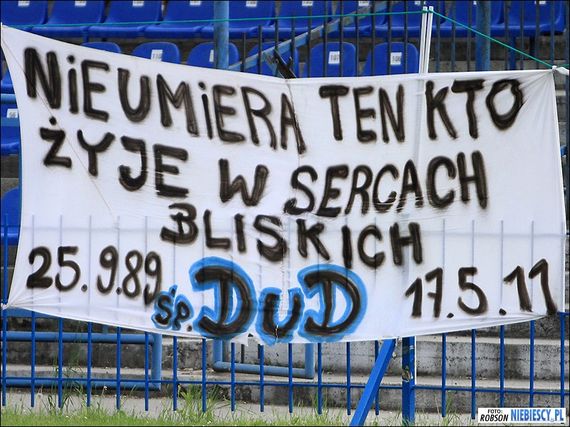 NIEUMIERA TEN KTO
ŻYJE W SERCACH
BLISKICH
25.9.89 ŚP. DUD 17.5.11
FOTO: ROBSON NIEBIESCY.PL